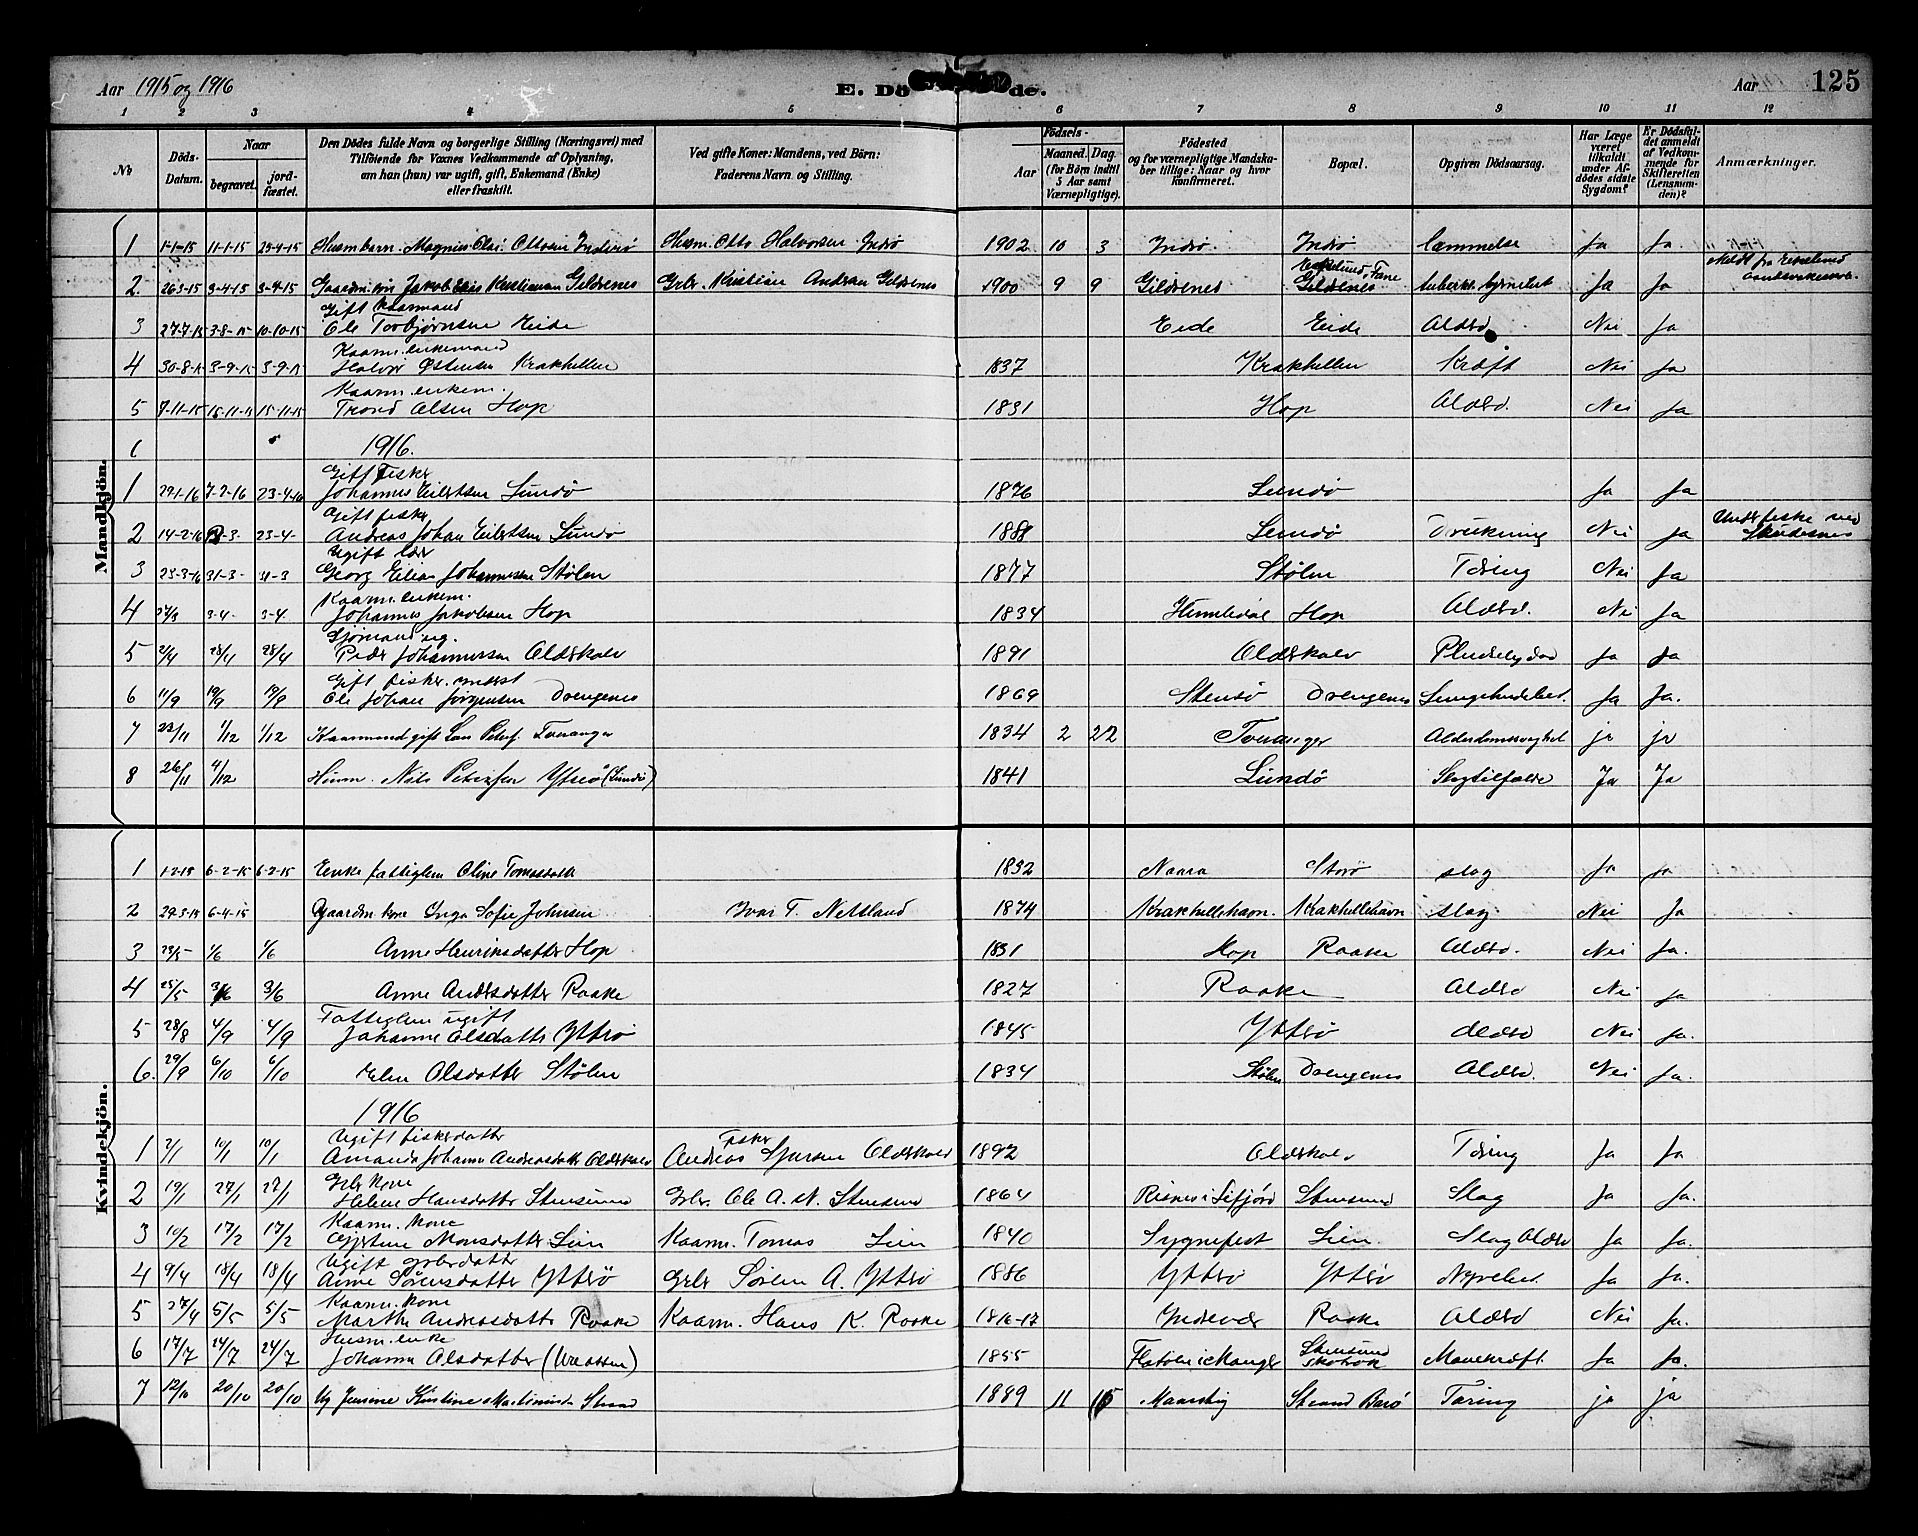 Aar 1915 og 1916
E. Dö de.
Aar 125
1 2 3 4 5 6 7 8 9 10 11 12
No
Döds-Datum.
Naar begravet. jordfæstet.
Den Dödes fulde Navn og borgerlige Stilling (Næringsvei) med Tilföiende for Voxnes Vedkommende af Oplysning, om han (hun) var ugift, gift, Enkemand (Enke) eller fraskilt.
Ved gifte Koner: Mandens, ved Börn: Faderens Navn og Stilling.
Födsels- Aar Maaned. Dag. (for Börn indtil 5 Aar samt Værnepligtige).
Födested og for værnepligtige Mandskaber tillige: Naar og hvor konfirmeret.
Bopæl.
Opgiven Dödsaarsag.
Har Læge været tilkaldt under Afdödes sidste Sygdom?
Er Dödsfaldet anmeldt af Vedkommende for Skifteretten (Lensmanden)?
Anmærkninger.
Mandkjön.
1 1-1-15 11-1-15 25-4-15 Husm.barn. Magnus Olai Ottosen Indreø Husm. Otto Halvorsen Indrø 1902 10 3 Indrø. Indrø læmmelse Ja Ja.
2. 26-3-15 3-4-15 3-4-15 Kristiansen Gildrenes Grbr. Kristian Andreas Gildrenes 1900 9 9 Gildrenes Gildrenes Ja Ja
Gift Kaarmand
3 27-7-15 3-8-15 10-10-15 Ole Torbjørnsen Eide Eide Eide Alderd. Nei Ja
Kaarm. enkemand
4 30-8-15 3-9-15 3-9-15 Halvor Østensen Krakhellen 1837 Krakhellen Kræft Nei Ja
Kaarm. enkem.
5 7-11-15 15-11-15 15-11-15 Trond Olsen Hop 1831 Hop Alderd. Nei Ja
1916.
Gift Fisker
1 29-1-16 7-2-16 23-4-16 Johannes Eilertsen Lundø 1876 Lundø Ja Ja
Gift fisker
2 14-2-16 -3- 23-4- Andreas Johan Eilertsen Lundø 1888 Lundø Drukning Nei Ja Under fiske ved Skudesnes
Ugift
3 23-3-16 31-3- 31-3 Georg Elias Johannessen Stølen 1877 Stølen Tæring Nei Ja
Kaarm. enkem.
4 27/3 3-4- 3-4. Johannes Jakobsen Hop 1834 Hop Alderd. Nei Ja
Sjømand ug.
5 2/4 28/4 28/4 Peder Johannessen Oldeskolv 1891 Oldeskolv Ja Ja
Gift fisker
6 11/9 19/9 19/9 Ole Johan Jørgensen Drengenes 1869 Stensø Drengenes Ja Ja.
7 23/11 1/12 1/12 Kaarmand gift Lars Peters. Tveranger 1834 2 22 Tveranger Alderdomssvaghed ja ja
8 26/11 4/12 Husm. Nils Petersen Ytterø (Lundø) 1841 Lundø Slagtilfælde Ja Ja
Kvindekjön.
1 1-2-15 6-2-15 6-2-15 Enke fattiglem Oline Tomasdatter 1832 Naara Storø slag Ja Ja
2 29-3-15 6-4-15 Gaardm. kone Inga Sofie Johnsen Ivar T. Nettland 1874 Krakhellehavn. Krakhellehavn slag Nei Ja
3 23/5 1/6 1/6 Anne Henriksdatter Hop 1831 Hop Raake Alderd. Nei Ja.
4 25/5 3/6 3/6 Anne Andersdatter Raake 1827 Raake Alderd Nei Ja
Fattiglem ugift
5 28/8 4/9 4/9 Johanne Olsdatter Ytterø 1845 Ytterø Alderd Nei Ja.
6. 29/9 6/10 6/10 Elen Olsdatter Stølen 1834 Stølen Drengenes Alderd. Nei Ja.
1916
Ugift fiskerdatter Fisker
1 2/1 10/1 10/1 Amanda Johanne Andreasdatter Oldeskolv Andreas Sjursen Oldeskolv 1892 Oldeskolv Tæring Ja Ja
Grbr kone
2 19/1 27/1 27/1 Helene Hansdatter Stensund Grbr. Ole A. N. Stensund 1864 Risnes i Eifjord Stensund Slag Ja Ja.
Kaarm. kone
3 10/2 17/2 17/2 Gjertine Monsdatter Lien Kaarm. Tomas Lien 1840 Sygnefest Lien. Slag Alderd Ja Ja.
Ugift grbr.datter
4 9/4 18/4 18/4 Anne Sørensdatter Ytterø Grbr Søren A. Ytterø 1886 Ytterø Ytterø Nyrebet. Ja Ja.
Kaarm. kone
5 27/4 5/5 5/5 Marthe Andreasdatter Raake Kaarm. Hans K. Raake 1816-17 Indrevær Raake Alderd Nei Ja.
Husm. enke
6 17/7 24/7 24/7 Johanne Olsdatter 1855 Fløtøen i Manger Stensund Mavekræft. Ja Ja.
7 12/10 20/10 20/10 Ug Jensine Kristine Martininda Strand 1889 11 15 Strand Barø Tæring ja ja